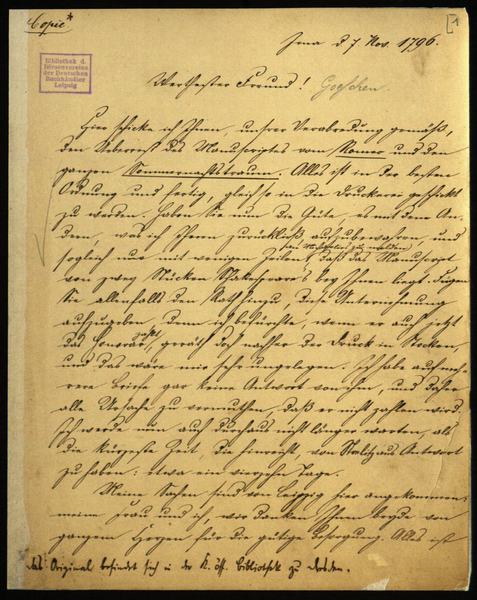 Copie*
[1
Jena d. 7 Nov. 1796.
Bibliothek d.
Börsenvereins
der Deutschen
Buchhändler
Leipzig
Werthester Freund! Goeschen.
Hier schicke ich Ihnen, unsrer Verabredung gemäß,
den Ueberrest des Manuscriptes vom Romeo und den
ganzen Sommernachtstraum. Alles ist in der besten
Ordnung und fertig, gleich so in die Druckerei geschickt
zu werden. Haben Sie nun die Güte, es mit dem An-
dern, was ich Ihnen zurückließ, aufzubewahren, und
sogleich nur mit wenigen Zeilen zu melden
daß das Manuscript
von zwey Stücken Shakespeare's bey Ihnen liegt. Fügen
Sie allenfalls den Rath hinzu, diese Unternehmung
aufzugeben, denn ich befürchte, wenn er auch jetzt
das Honorar zahlt, geräth doch nachher der Druck in Stocken,
und das wäre mir sehr ungelegen. Ich habe auf meh-
rere Briefe gar keine Antwort von ihm, und daher
alle Ursache zu vermuthen, daß er nicht zahlen wird.
Ich werde nun auch durchaus nicht länger warten, als
die kürzeste Zeit, die hinreicht, von Antwort
zu haben: etwa ein vierzehn Tage.
Meine Sachen sind von Leipzig hier angekommen:
meine Frau und ich, wir danken Ihnen beyde von
ganzem Herzen für die gütige Besorgung. Alles ist
Das Original befindet sich in der K. öff. Bibliothek zu Dresden.